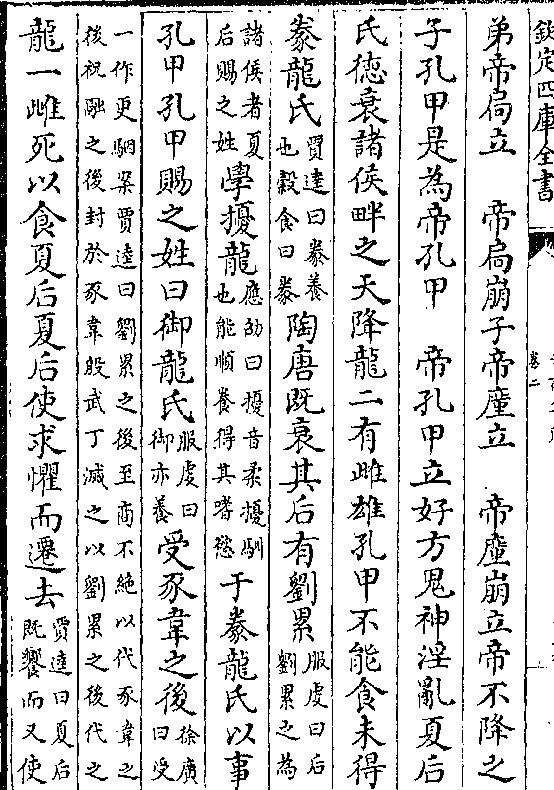 欽定四庫全書
卷二
弟帝扃立　帝扃崩子帝廑立　帝廑崩立帝不降之
子孔甲是為帝孔甲　帝孔甲立好方鬼神淫亂夏后
氏徳衰諸侯畔之天降龍二有雌雄孔甲不能食未得
豢龍氏賈逵曰豢養也榖食曰豢陶唐既衰其后有劉累服虔曰后劉累之為
諸侯者夏后賜之姓學擾龍應劭曰擾音柔擾馴也能順養得其嗜慾于豢龍氏以事
孔甲孔甲賜之姓曰御龍氏服虔曰御亦養受豕韋之後徐廣曰受
一作更駰案賈逵曰劉累之後至商不絶以代豕韋之
後祝融之後封於豕韋殷武丁滅之以劉累之後代之
龍一雌死以食夏后夏后使求懼而遷去賈逵曰夏后既饗而又使